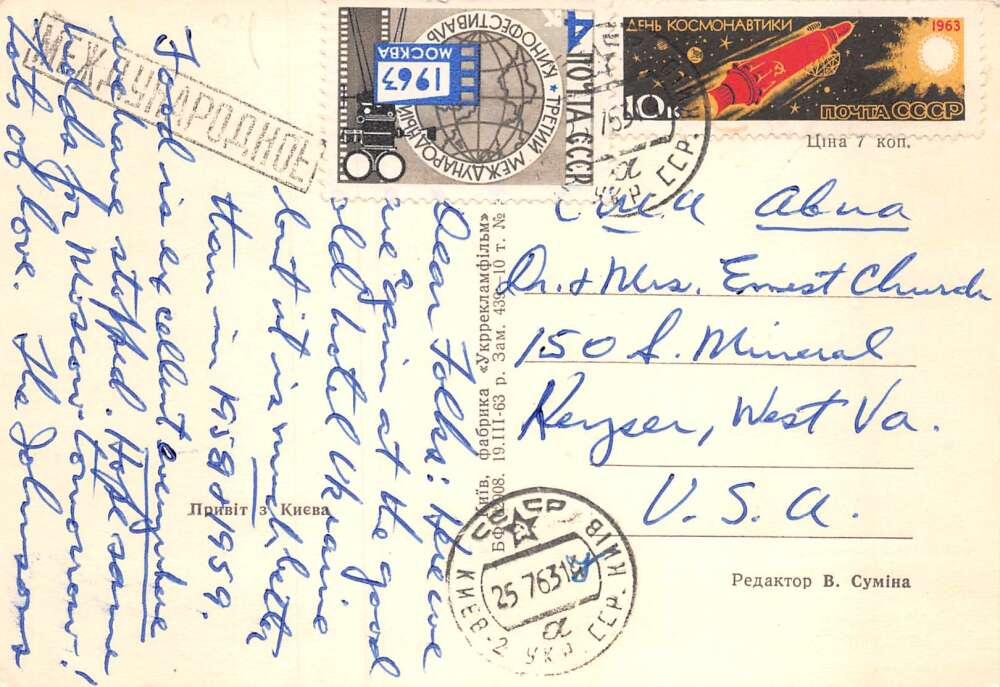 МЕЖДУНАРОДНОЕ
Dear Folks: Here we
are again at the good
old hotel Ukraine
but it is much better
than in 1958 & 1959.
Food is excellent everywhere
we have stopped. Hope same
holds for Moscow tomorrow!
Lots of love. The Johnsons
Привіт з Києва
4К
ПОЧТА СССР
ТРЕТИЙ МЕЖДУНАРОДНЫЙ
КИНОФЕСТИВАЛЬ
МОСКВА
1963
ДЕНЬ КОСМОНАВТИКИ
1963
10К
ПОЧТА СССР
Ціна 7 коп.
УКР. ССР.
США Авиа
Dr. & Mrs. Ernest Church
150 S. Mineral
Keyser, West Va.
U. S. A.
Київ. фабрика «Укррекламфільм»
19.III-63 р. Зам. 439–10 т. №
СССР
КИЕВ-2 УКР. ССР. КИЇВ
25 7 63
Редактор В. Суміна